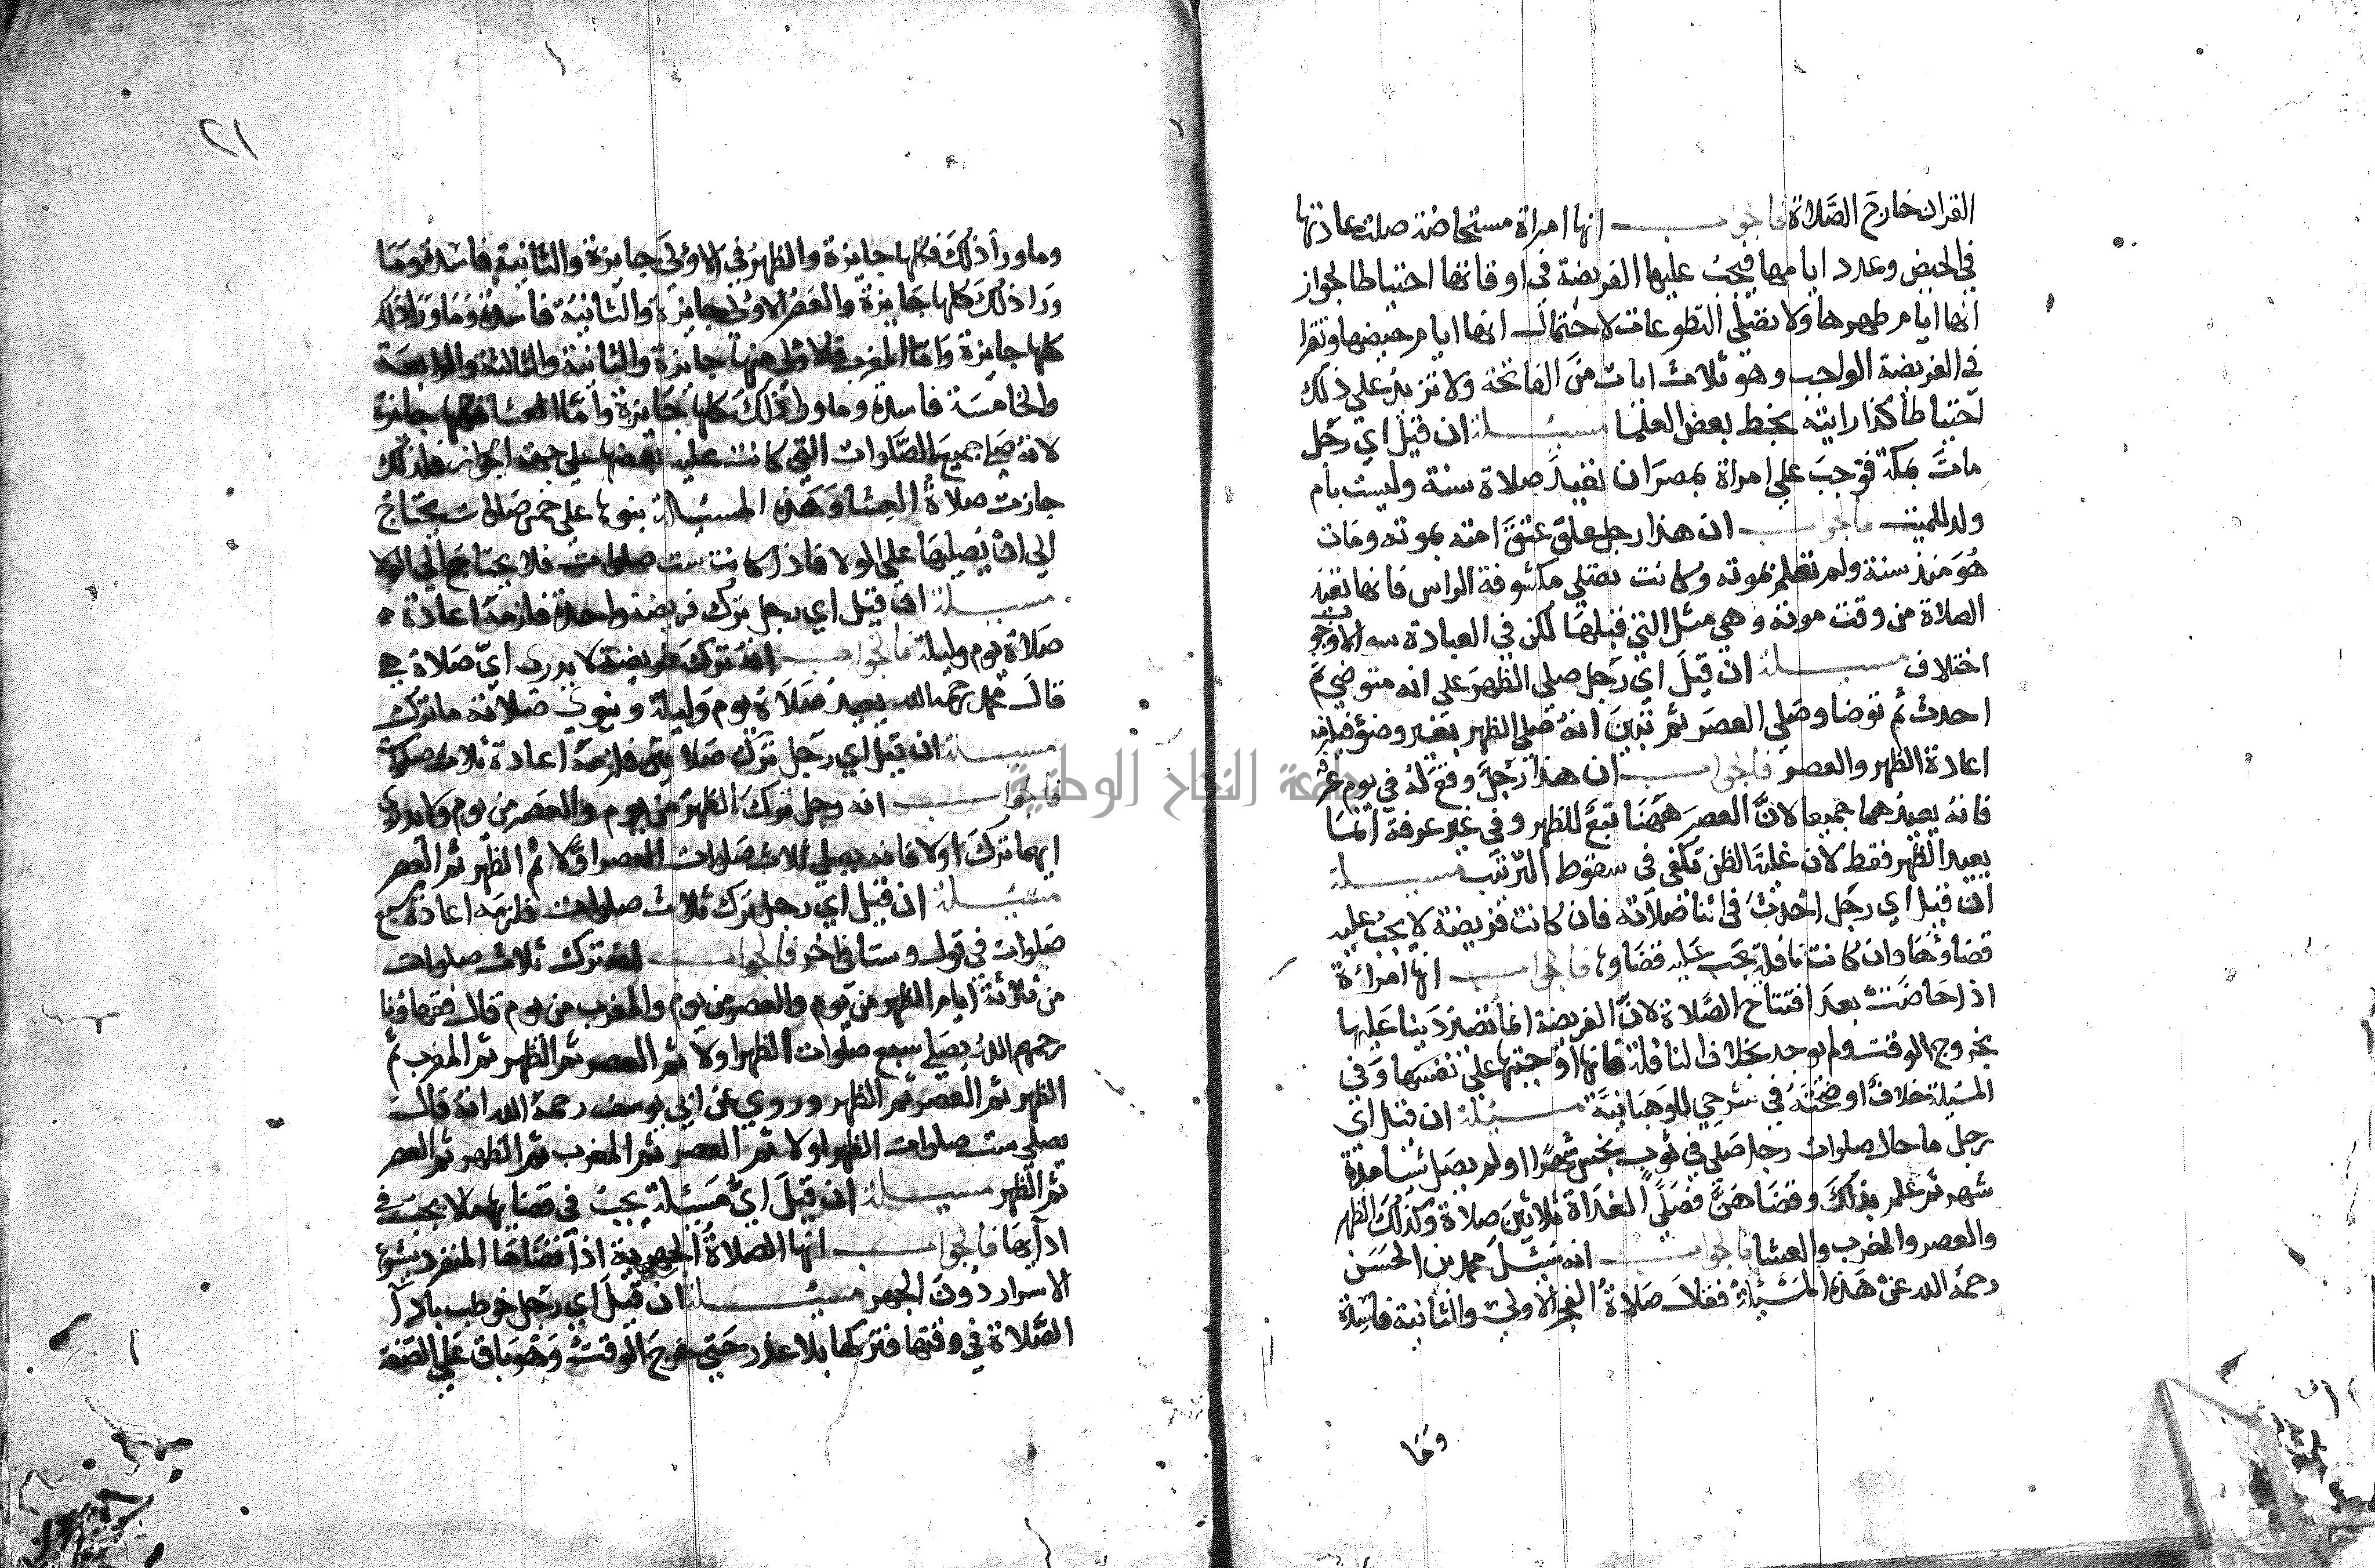 القران خارج الصلاة فالجواب انها امراة مستحاضة صلت عادتها
في الحيض وعدد ايامها فيجب عليها الفريضة في اوقاتها احتياطا لجواز
انها ايام طهرها ولا تصلي التطوعات لاحتمال انها ايام حيضها وتقرا
في الفريضة الواجب وهو ثلاث ايات من الفاتحة ولا تزيد على ذلك
احتياطا كذا رايته بخط بعض العلما مسئلة ان قيل اي رجل
مات بمكة فوجب علي امراة بمصر ان تعيد صلاة سنة وليست بام
ولد للميت فالجواب ان هذا رجل علق عتق امته بموته ومات
هو منذ سنة ولم تعلم بموته وكانت تصلي مكشوفة الراس فانها تعيد
الصلاة من وقت موته وهي مثل التي قبلها لكن في العبادة سوا لا وجوب
اختلاف مسئلة ان قيل اي رجل صلي الظهر علي انه متوضي ثم
احدث ثم توضا وصلي العصر ثم تبين انه صلي الظهر بغير وضؤ فيلزمه
اعادة الظهر والعصر فالجواب ان هذا رجل وقع له في يوم عرفة
فانه يعيدهما جميعا لان العصر ههنا تبع للظهر وفي غير عرفة انما
يعيد الظهر فقط لان غلبة الظن تكفي في سقوط الترتيب مسئلة
ان قيل اي رجل احدث في اثنا صلاته فان كانت فريضة لا يجب عليه
قضاؤها وان كانت نافلة يجب عليه قضاوها فالجواب انها امرائة
اذا حاضت بعد افتتاح الصلاة لان الفريضة انما تصير دينا عليها
بخروج الوقت ولم يوجد بخلاف النافلة فانها اوجبتها علي نفسها وفي
المسئلة خلاف اوضحته في شرحي للوهبانية مسئلة ان قيل اي
رجل ما حال صلوات رجل صلي في ثوب نجس شهرا اولم يصل شيا مدة
شهر ثم علم بذلك وقضاهن فصلي الغداة ثلاثين صلاة وكذلك الظهر
والعصر والمغرب والعشا فالجواب انه سئل محمد بن الحسن
رحمه الله عن هذه المسئلة فقال صلاة الفجر الاولي والثانية فاسدة
وما
٢١
وما ورا ذلك فكلها جايزة والظهر في الاولى جايزة والثانية فاسدة وما
ورا ذلك كلها جايزة والعصر الاولي جايزة والثانية فاسدة وما ورا ذلك
كلها جايزة واما المغرب فلاولى منها جايزة والثانية والثالثة والرابعة
والخامسة فاسدة وما ورا ذلك كلها جايزة واما العشا فكلها جايزة
لانه صلي جميع الصلوات التي كانت عليه بعضها علي جهة الجواز فلذلك
جازت صلاة العشا وهذه المسئلة بنوها علي خمس صلوات يحتاج
الي ان يصليها علي الولا فاذا كانت ست صلوات فلا يحتاج الي الولا
مسئلة ان قيل اي رجل ترك فريضة واحدة فلزمه اعادة
صلاة يوم وليلة فالجواب انه ترك فريضة لا يدري اي صلاة هي
قال محمد رحمه الله يعيد صلاة يوم وليلة وينوي صلاته ما ترك
مسئلة ان قيل اي رجل ترك صلاتين فلزمه اعادة ثلاث صلوات
فالجواب انه رجل ترك الظهر من يوم والعصر من يوم ولا يدري
ايهما ترك اولا فانه يصلي ثلاث صلوات العصر اولا ثم الظهر ثم العصر
مسئلة ان قيل اي رجل ترك ثلاث صلوات فلزمه اعادة سبع
صلوات في قول وستا في اخر فالجواب انه ترك ثلاث صلوات
من ثلاثة ايام الظهر من يوم والعصر من يوم والمغرب من يوم قال فقهاؤنا
رحمهم الله يصلي سبع صلوات الظهر اولا ثم العصر ثم الظهر ثم المغرب ثم
الظهر ثم العصر ثم الظهر وروي عن ابي يوسف رحمه الله انه قال
يصلي ست صلوات الظهر اولا ثم العصر ثم المغرب ثم الظهر ثم العصر
ثم الظهر مسئلة ان قيل اي مسئلة يجب في قضايها ما لا يجب في
ادايها فالجواب انها الصلاة الجهرية اذا قضاها المنفرد
الاسرار دون الجهر مسئلة ان قيل اي رجل خوطب بادآ
الصلاة في وقتها فتركها بلا عذر حتي خرج الوقت وهو باق علي الصفة
جامعة النجاح الوطنية